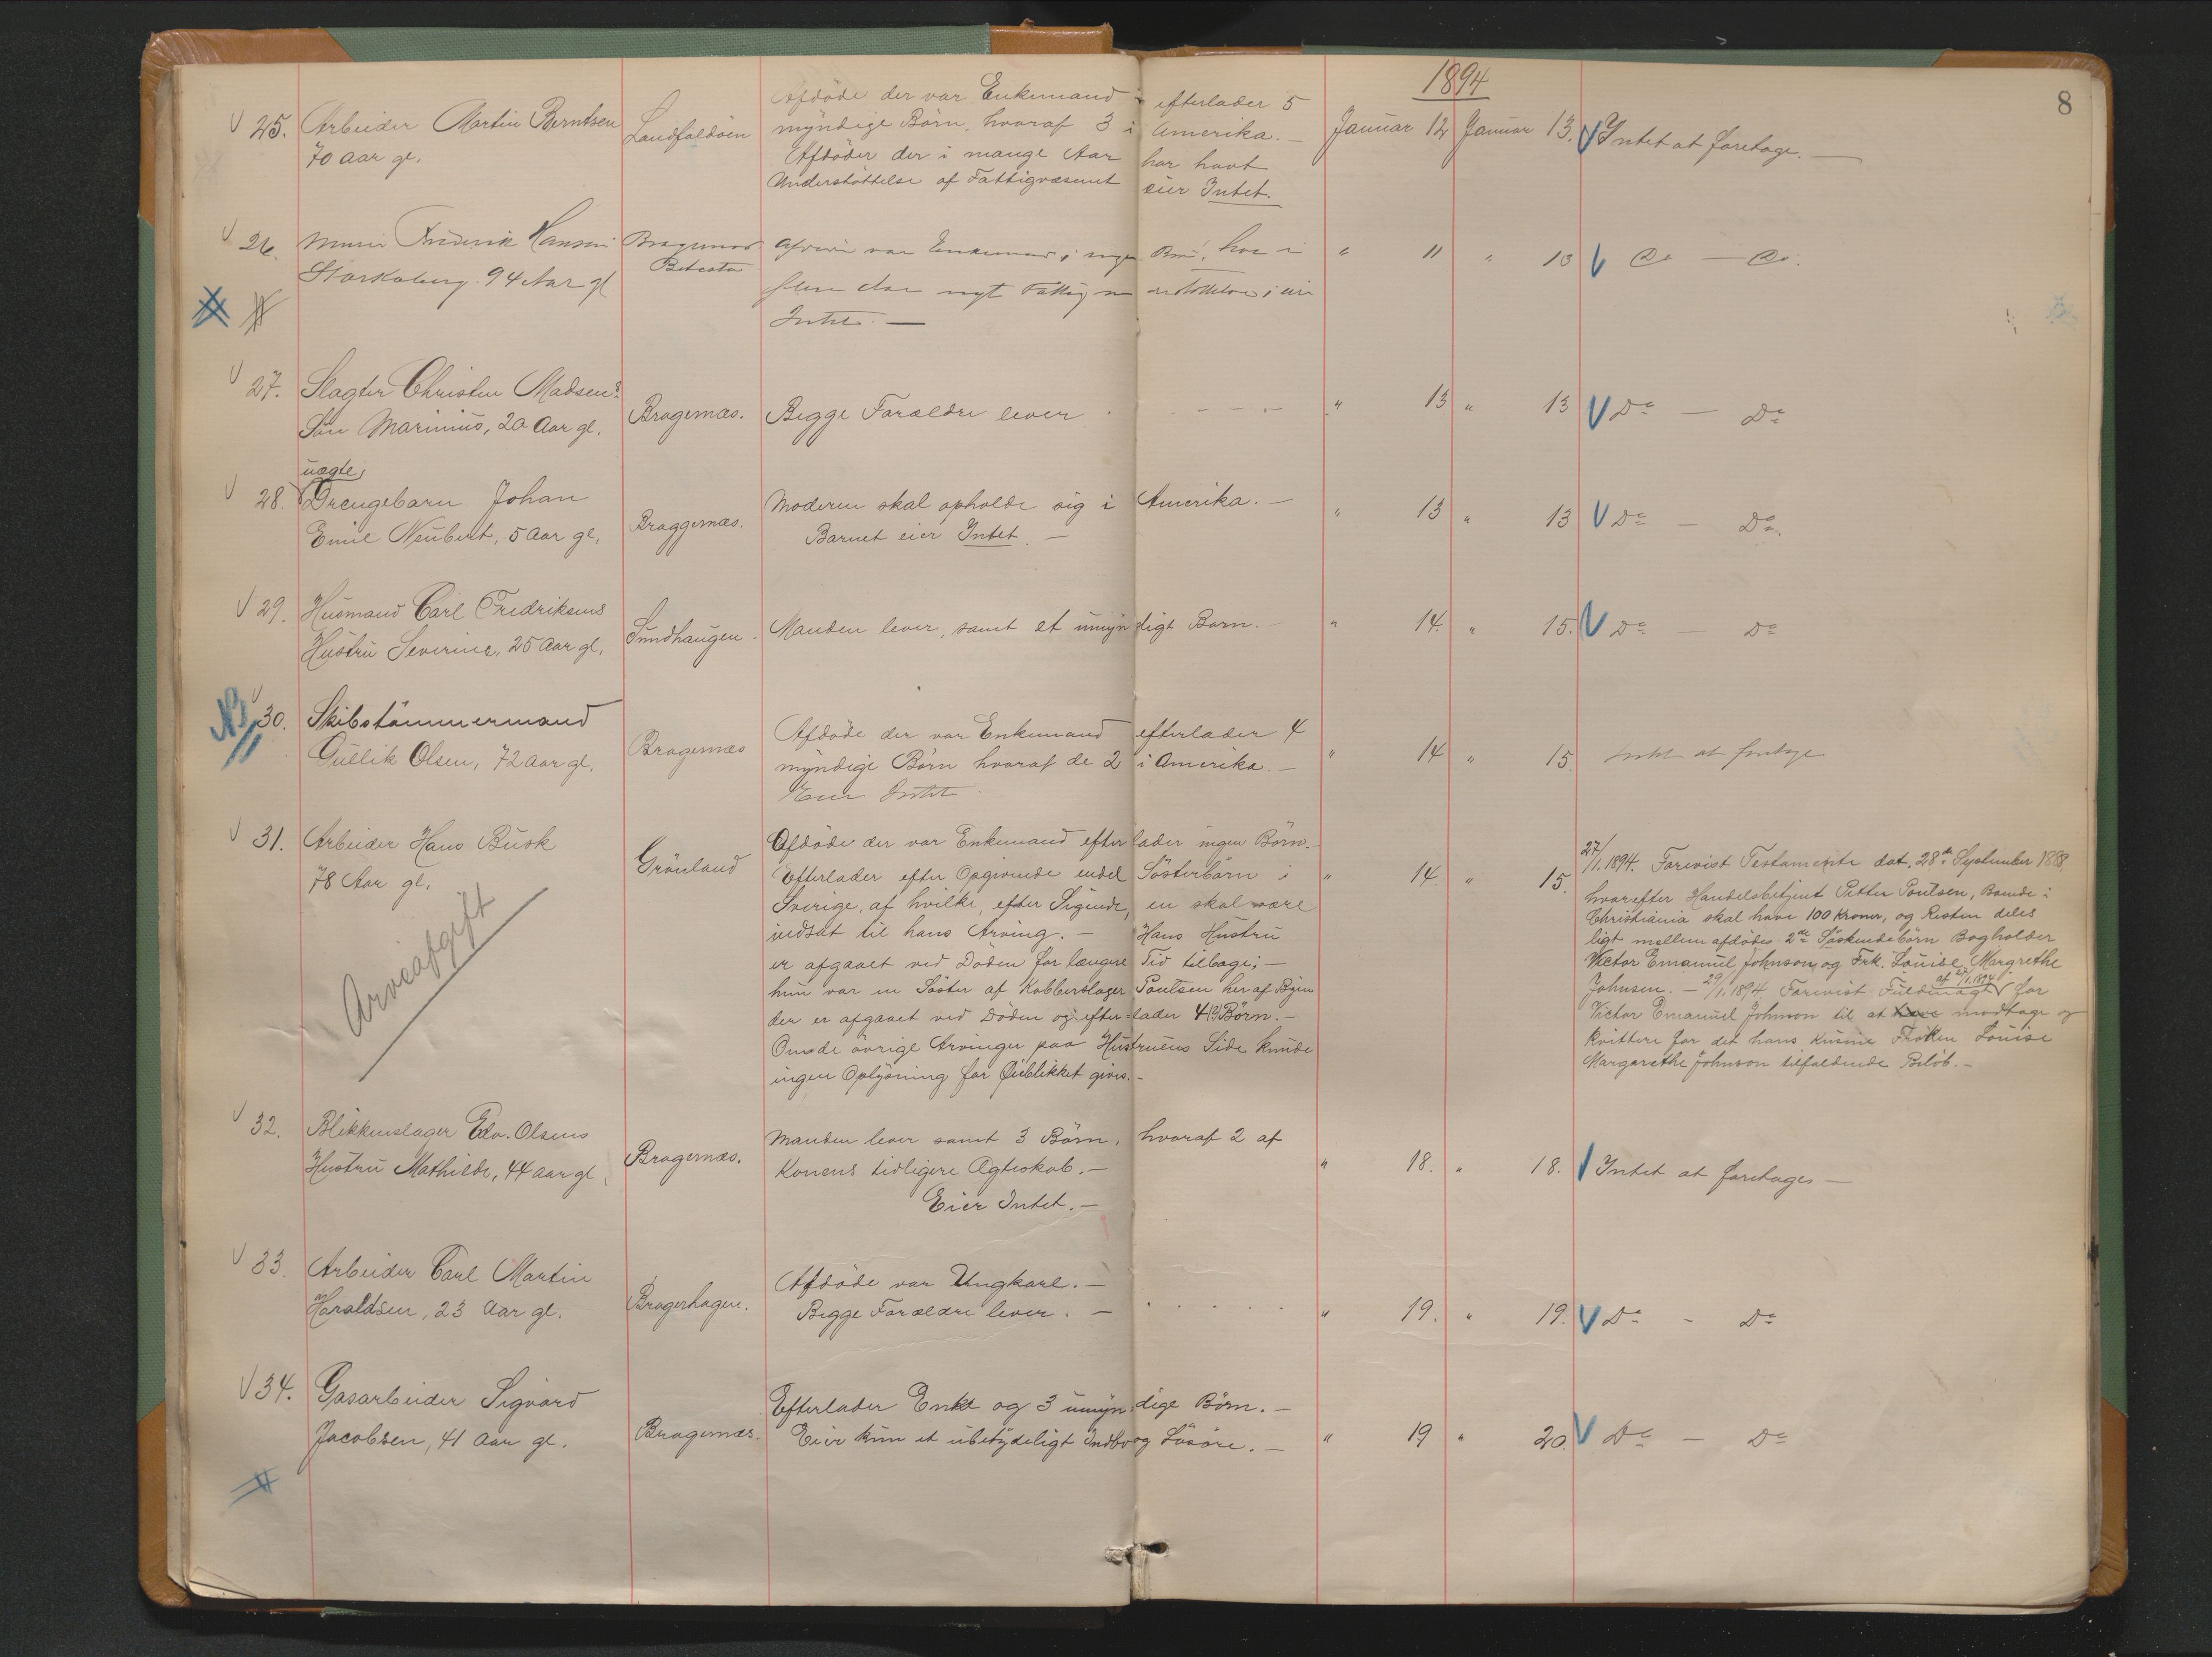 1894
8
25. Arbeider Martin Berntsen
70 Aar gl.
Landfaldöen
Afdöde der var Enkemand efterlader 5
myndige Börn, hvoraf 3 i Amerika. —
Afdöde der i mange Aar har havt
Understöttelse af Fattigvæsenet eier Intet.
Januar 12 Januar 13. Intet at foretage. —
26. Frederik Hansen
94 Aar gl
Bragernæs
var Enkemand
Intet. —
" 11 " 13 Do — Do.
27. Slagter Christen Madsens
Sön Marinius, 20 Aar gl.
Bragernæs.
Begge Forældre lever
" 13 " 13 Do — Do
uægte
28. Drengebarn Johan
Emil Neubert, 5 Aar gl.
Braggernæs.
Moderen skal opholde sig i Amerika. —
Barnet eier Intet. —
" 13 " 13 Do — Do.
29. Husmand Carl Fredriksens
Hustru Severine, 25 Aar gl.
Sundhaugen.
Manden lever, samt et umyndigt Barn. —
" 14. " 15. Do — Do
NB
30. Skibstömmermand
Gullik Olsen, 72 Aar gl.
Bragernæs
Afdöde der var Enkemand efterlader 4
myndige Börn hvoraf de 2 i Amerika. —
Eier Intet
" 14 " 15. Intet at foretage
31. Arbeider Hans Busk
78 Aar gl.
Arveafgift
Grönland
Afdöde der var Enkemand efterlader ingen Börn. —
Efterlader efter Opgivende endel Sösterbörn i
Sverige, af hvilke, efter Sigende, en skal være
indsat til hans Arving. — Hans Hustru
er afgaaet ved Döden for længere Tid tilbage; —
hun var en Söster af Kobberslager Poulsen her af Byen
der er afgaaet ved Döden og efterlader 4(?) Börn. —
Om de övrige Arvinger paa Hustruens Side kunde
ingen Oplysning for Öieblikket gives. —
" 14. " 15.
27/1.1894. Forevist Testamente dat. 28de September 1888,
hvorefter Handelsbetjent Petter Poulsen, Boende i
Christiania skal have 100 Kroner, og Resten deles
ligt mellem afdödes 2de Söskendebörn Bogholder
Victor Emanuel Johnson og Frk. Louise Margrethe
Johnsen. — 29/1.1894 Forevist Fuldmagt af 27/1.1894 for
Victor Emanuel Johnson til at modtage og
kvittere for det hans Kusine Fröken Louise
Margarethe Johnson tilfaldende Belöb. —
32. Blikkenslager Edv. Olsens
Hustru Mathilde, 44 Aar gl.
Bragernæs.
Manden lever samt 3 Börn, hvoraf 2 af
Konens tidligere Ægteskab. —
Eier Intet. —
" 18. " 18. Intet at foretages —
33. Arbeider Carl Martin
Haraldsen, 23 Aar gl.
Bragerhagen.
Afdöde var Ungkarl. —
Begge Forældre lever. —
" 19. " 19. Do - Do
34. Gasarbeider Sigvard
Jacobsen, 41 Aar gl.
Bragernæs.
Efterlader Enke og 3 umyndige Börn. —
Eier kun et ubetydeligt Indbo og Lösöre. —
" 19 " 20. Do — Do